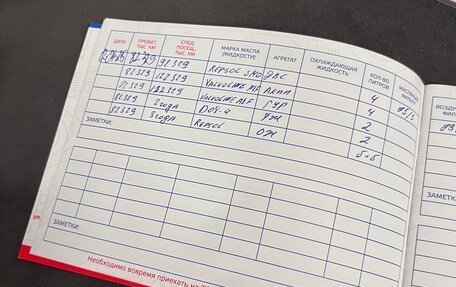 ДАТА ПРОБЕГ ТЫС. КМ СЛЕД. ПОСЕЩ. ТЫС. КМ МАРКА МАСЛА (ЖИДКОСТИ) АГРЕГАТ ОХЛАЖДАЮЩАЯ ЖИДКОСТЬ КОЛ-ВО ЛИТРОВ МАСЛЯНЫЙ ФИЛЬ
92329 Repsol ДВС 4
82329 122329 Valvoline АКПП 4
82329 Valvoline ГУР 2
82329 2года DOT-4 ТЖ 2
82329 3года Repsol ОЖ 5.5
ЗАМЕТКИ:
ЗАМЕТКИ:
Необходимо вовремя приехать на
ул.
ВОЗДУ
ФИЛ